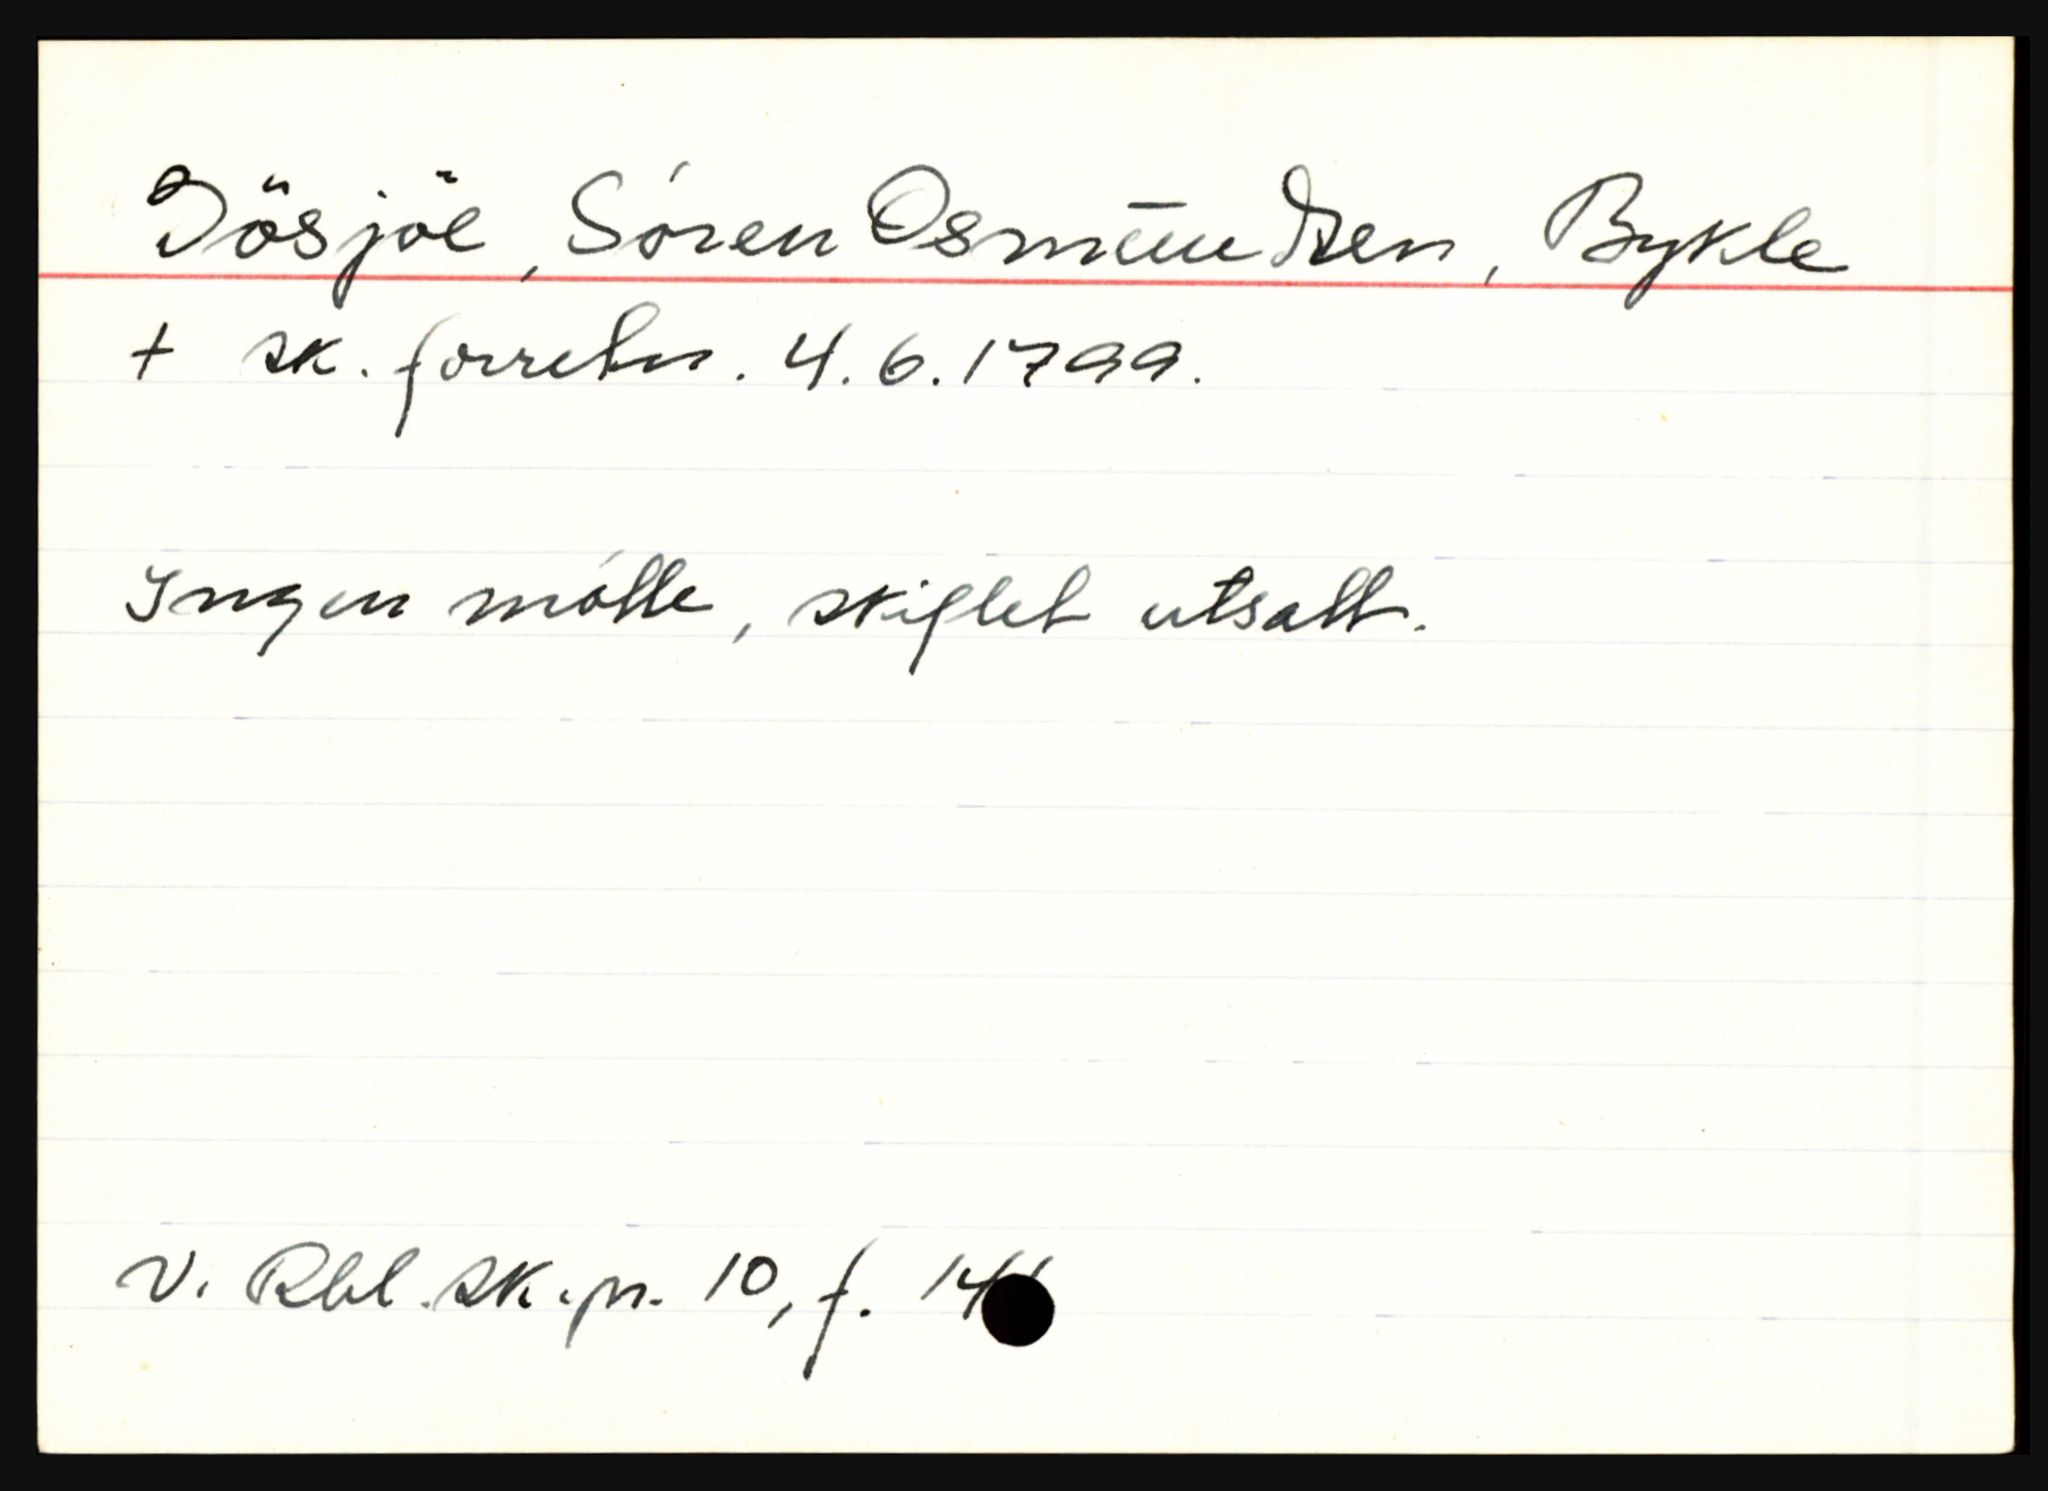 Dösjöe, Sören Osmundsen, Bykle
+ sk. forretn. 4.6.1799.
Ingen møtte, skiftet utsatt.
V. Rbl. sk.pr. 10, f.